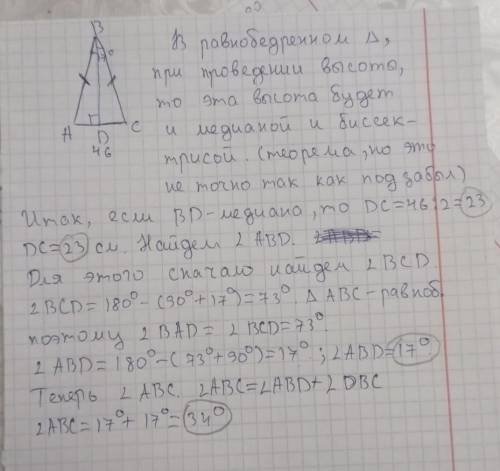 B
A
D
C
46
В равнобедренном Δ,
при проведении высоты,
то эта высота будет
и медианой и биссек-
трисой. (теорема, но это
не точно так как подзабыл)
Итак, если BD-медиана, то DC=46:2=23
DC=23 см. Найдем ∠ABD.
Для этого сначало найдем ∠BCD
∠BCD=180°-(90°+17°)=73°. Δ ABC-равноб.
поэтому ∠BAD=∠BCD=73°.
∠ABD=180°-(73°+90°)=17°; ∠ABD=17°.
Теперь ∠ABC. ∠ABC=∠ABD+∠DBC
∠ABC=17°+17°=34°